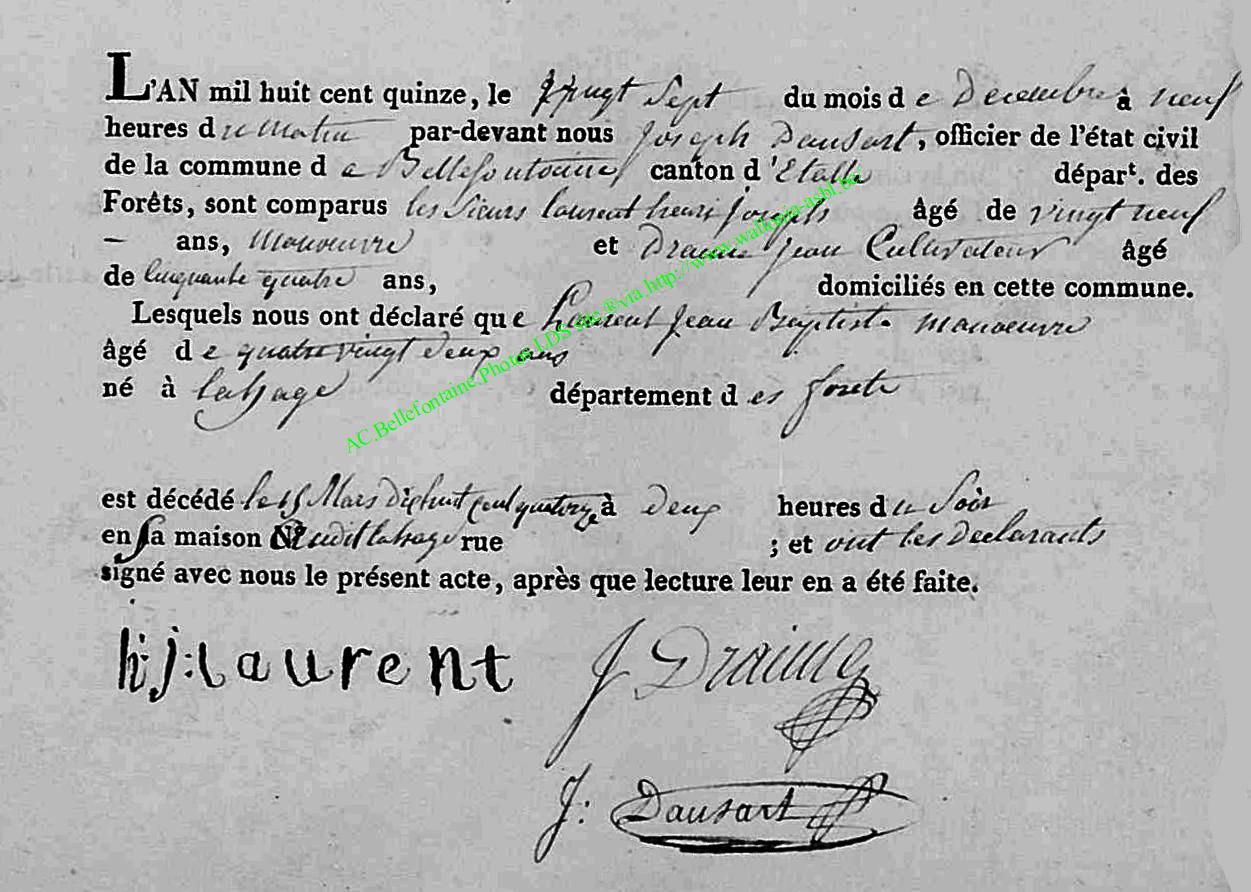 L'AN mil huit cent quinze, le vingt Sept du mois de Decembre à neuf
heures du Matin par-devant nous Joseph Dausart, officier de l'état civil
de la commune de Bellefontaine canton d'Etalleépar<sup>t</sup>. des
Forêts, sont comparus les Sieurs laurent henri joseph âgé de vingt neuf
— ans, Manoeuvre et Draime jean Cultivateur âgé
de Cinquante quatre ans, domiciliés en cette commune.
Lesquels nous ont déclaré que Laurent jean Baptiste manoeuvre
âgé de quatre vingt deux ans
né à lahage département des forets
est décédé le 15 Mars dixhuit cent quatorze à deux heures du Soir
en sa maison audit lahage rue ; et ont les Declarants
signé avec nous le présent acte, après que lecture leur en a été faite.
h: j: laurent J Draime
J: Dausart
AC.Bellefontaine.Photos LDS site ® via http://www.wallonia-asbl.be/